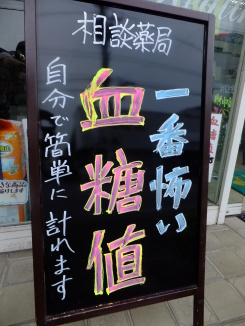 相談薬局
一番怖い
血糖値
自分で簡単に計れます